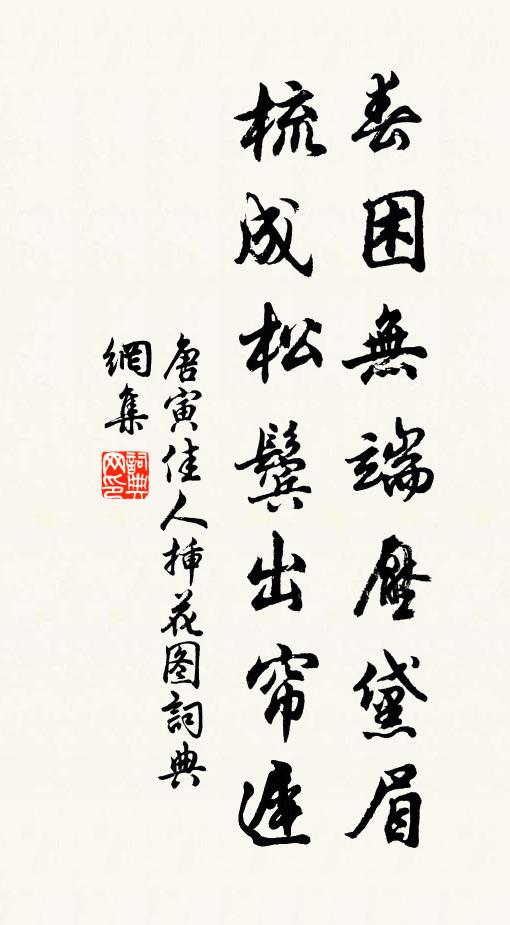 春困無端壓黛眉
梳成松鬢出帘遲
唐寅佳人插花图詞典
網集
詞典網印